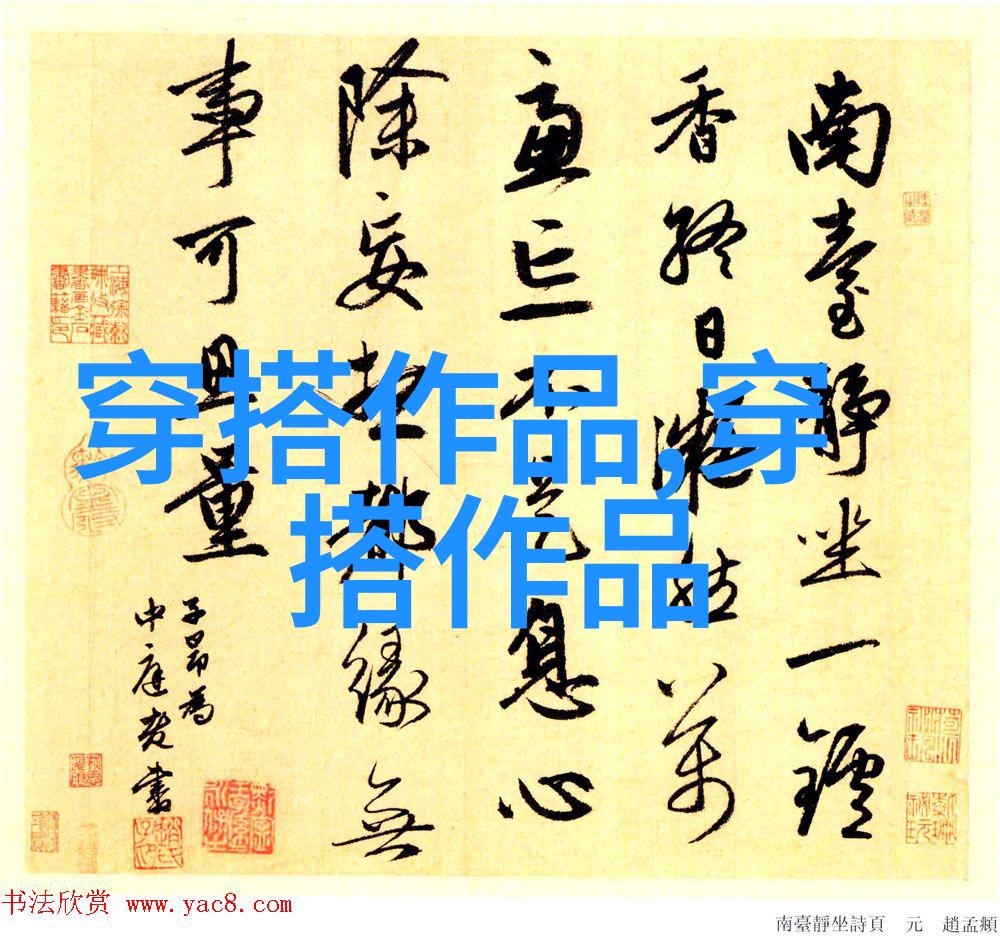 南臺靜坐一鑪
香終日凝然萬
慮亡不是息心
除妄想都緣無
事可思量
子昂為
中庭老書
穿搭作品,穿
搭作品
书法欣赏 www.yac8.com
南臺靜坐詩頁 元 趙孟頫